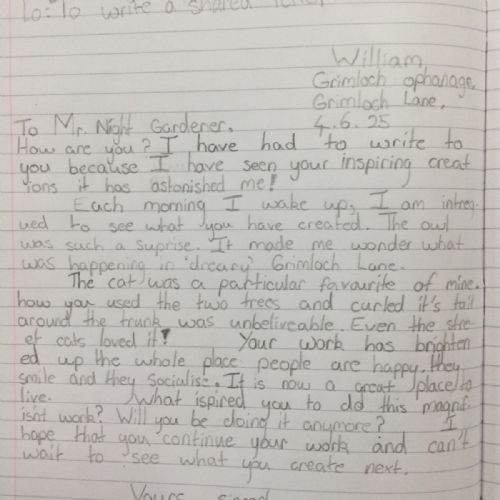 Lo: To write a shared letter
William,
Grimloch ophanage,
Grimloch Lane,
4.6.25
To Mr. Night Gardener.
How are you? I have had to write to
you because I have seen your inspiring creat
ions it has astonished me!
Each morning I wake up, I am intreg
ued to see what you have created. The owl
was such a suprise. It made me wonder what
was happening in 'dreary' Grimloch Lane.
The cat was a particular favourite of mine.
how you used the two trees and curled it's tail
around the trunk was unbeliveable. Even the stre
et cats loved it! Your work has brighten
ed up the whole place people are happy, they
smile and they socialise. It is now a great place to
live. what ispired you to do this magnif-
isnt work? Will you be doing it anymore? I
hope that you continue your work and can't
wait to see what you create next.
Yours